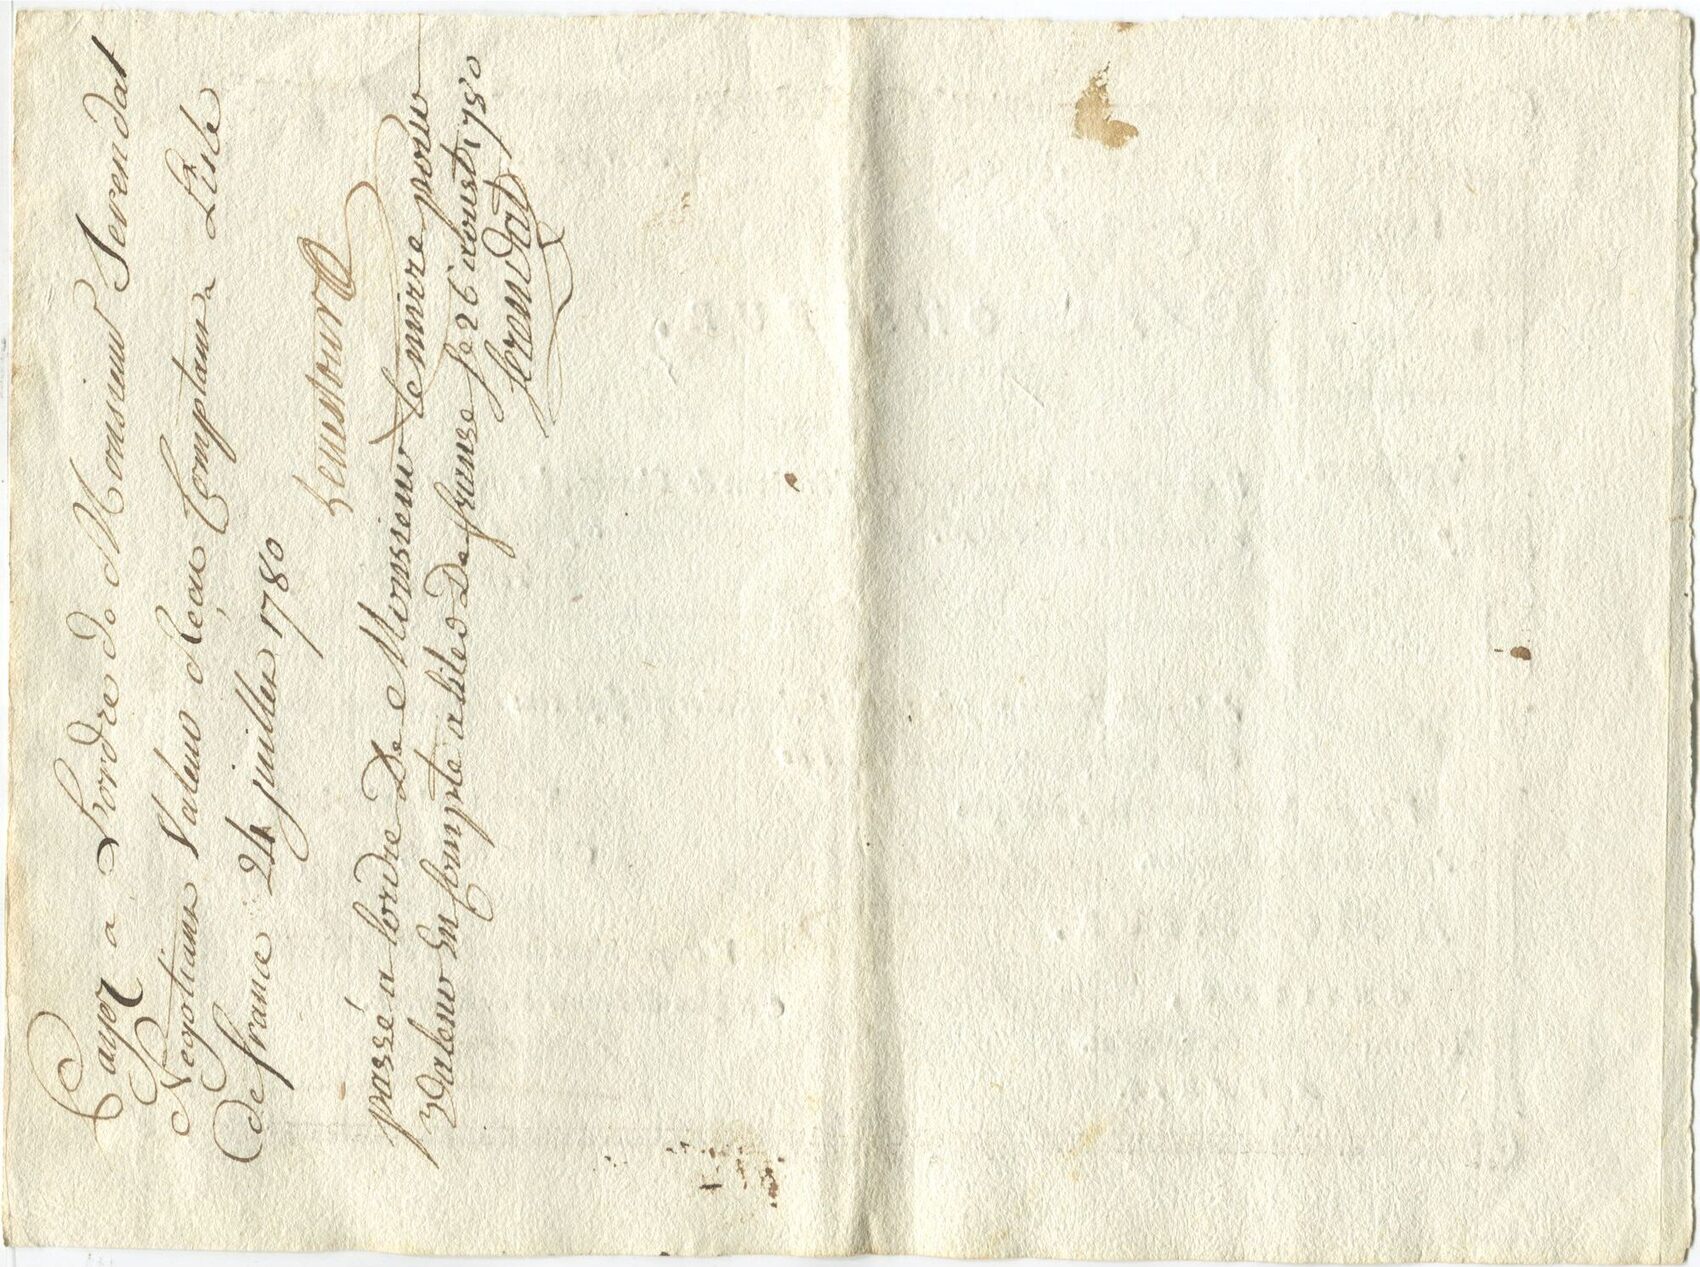 Payez a Lordre de Monsieur Serendat
Negotiant Valeur Reçue Comptant a Lisle
de france 24 juillet 1780
passé a lordre De Monsieur Lemirre pour
Valeur En Compte a lisle De franse le 26 aoust 1780
Serendat